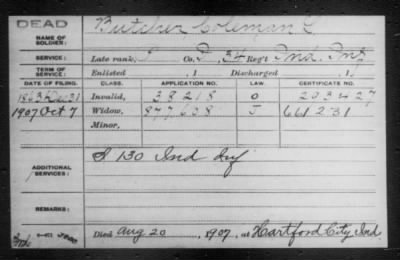 DEAD
NAME OF SOLDIER:
Butcher Coleman C
SERVICE:
Late rank, Co. D, 34 Reg't Ind. Inf.
TERM OF SERVICE:
Enlisted , 1 Discharged , 1
DATE OF FILING. CLASS. APPLICATION NO. LAW. CERTIFICATE NO.
1863 Dec 31 Invalid, 38218 O 203427
1907 Oct 7 Widow, 877,638 J 661231
Minor,
ADDITIONAL SERVICES:
S 130 Ind Inf
REMARKS:
Died Aug 20, 1907, at Hartford City, Ind